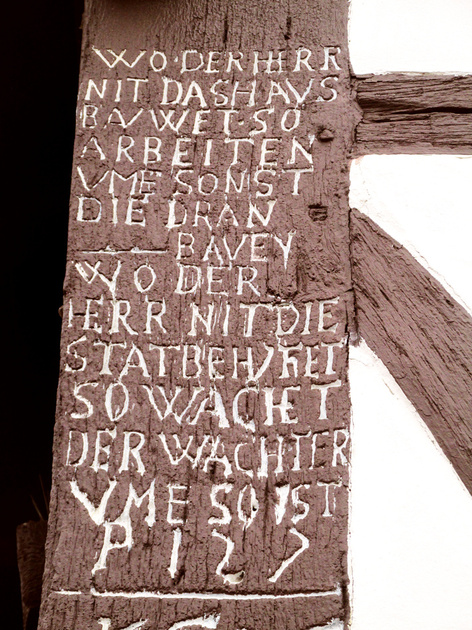 WO·DERHERR
NIT DASHAVS
BAVWET·SO
ARBEITEN
VMESONST
DIE DRAN
BAVEY
WO DER
HERR NITDIE
STATBEHVHET
SO WACHET
DER WACHTER
VME SONST
P 127